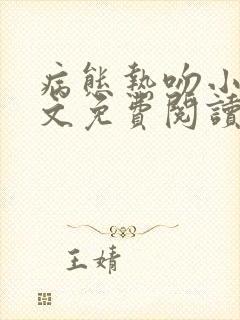 病態熱吻小
文免費閱讀
王婧